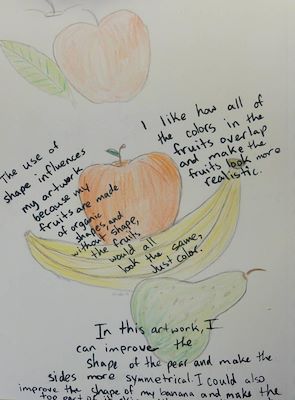 The use of
shape influences
my artwork
because my
fruits are made
of organic
shapes, and
without shape,
the fruits
would all
look the same,
Just color.
I like how all of
the colors in the
fruits overlap
and make the
fruits look more
realistic.
In this artwork, I
can improve the
shape of the pear and make the
sides more symmetrical. I could also
improve the shape of my banana and make the